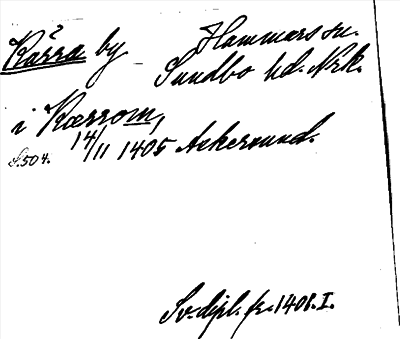 Kärra by Hammars sn.
Sundbo hd. Nrk.
i Kærrom,
S. 504. 14/11 1405 Askersund.
Sv. dipl. fr. 1401. I.